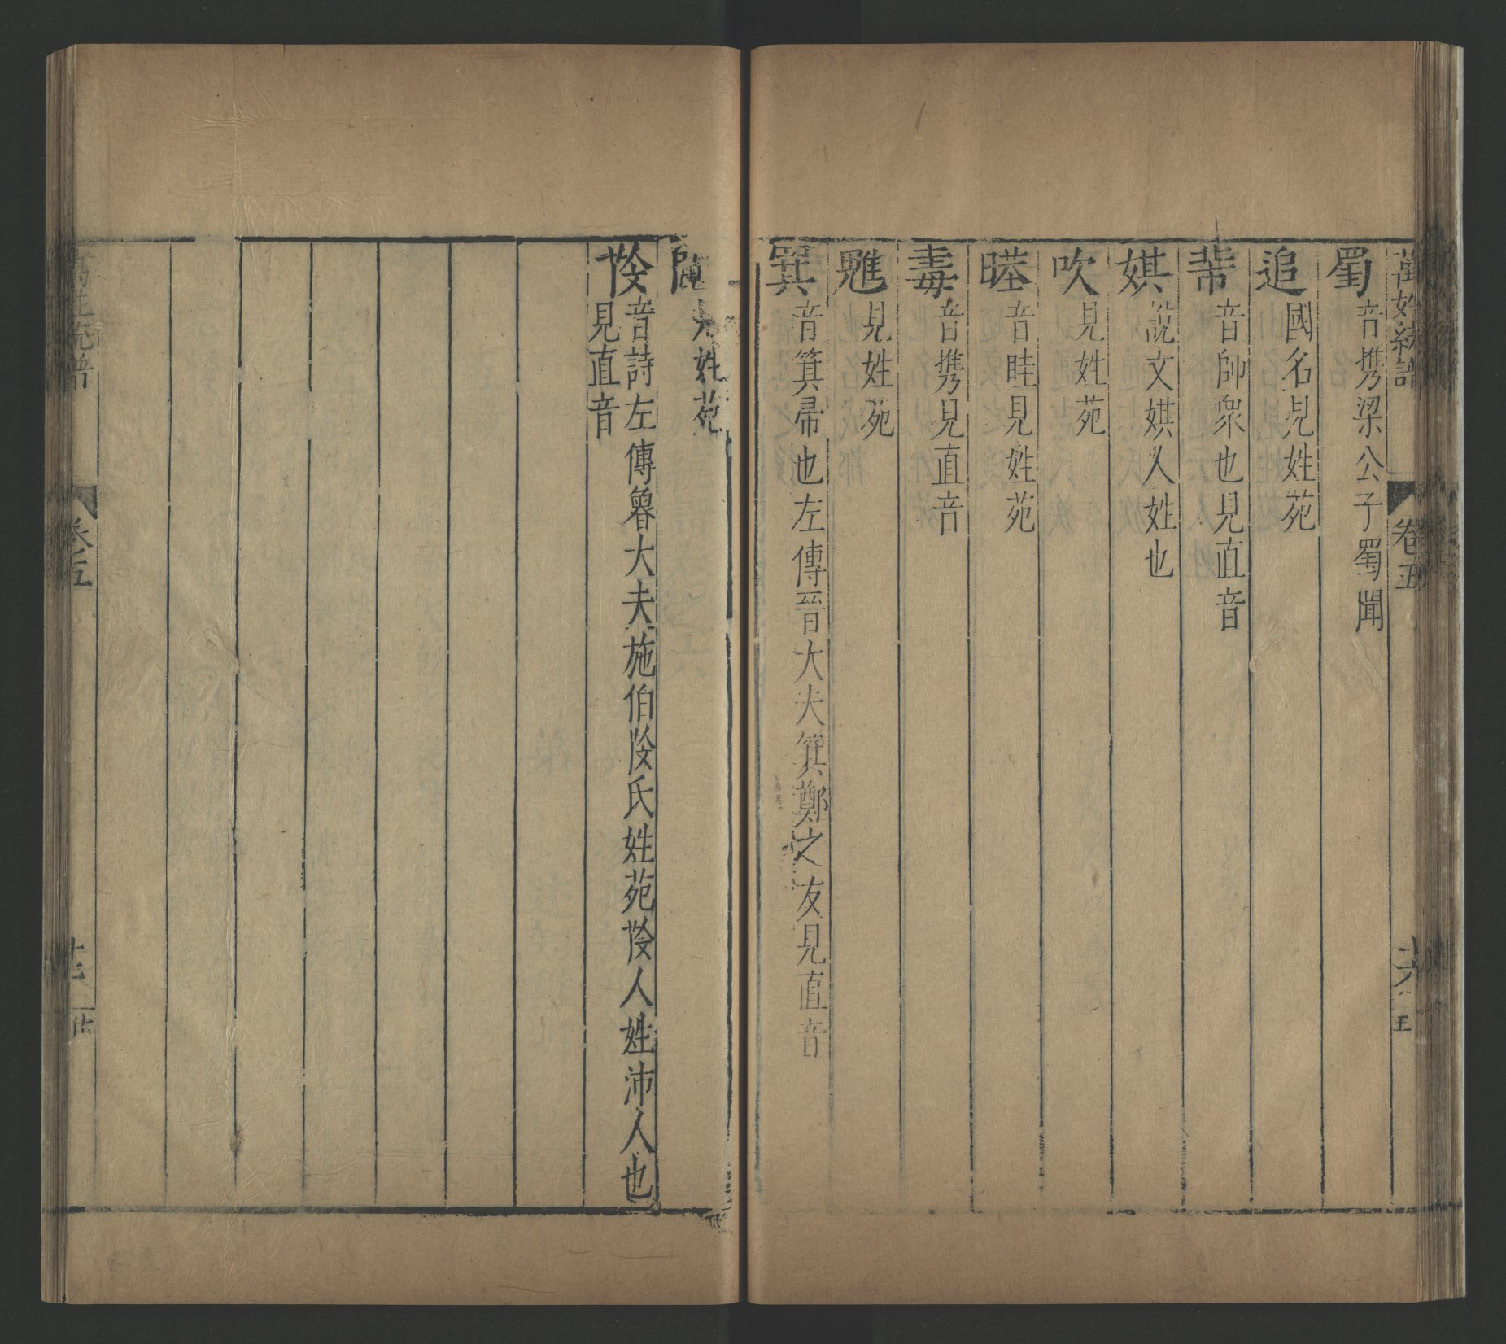 萬姓統譜 卷五
蜀 音攜梁公子蜀聞
追 國名見姓苑
音師衆也見直音
娸 說文娸人姓也
吹 見姓苑
音眭見姓苑
音攜見直音
見姓苑
音箕帚也左傳晉大夫箕鄭之友見直音
見姓苑
音詩左傳魯大夫施伯 氏姓苑 人姓沛人也
見直音
卷五